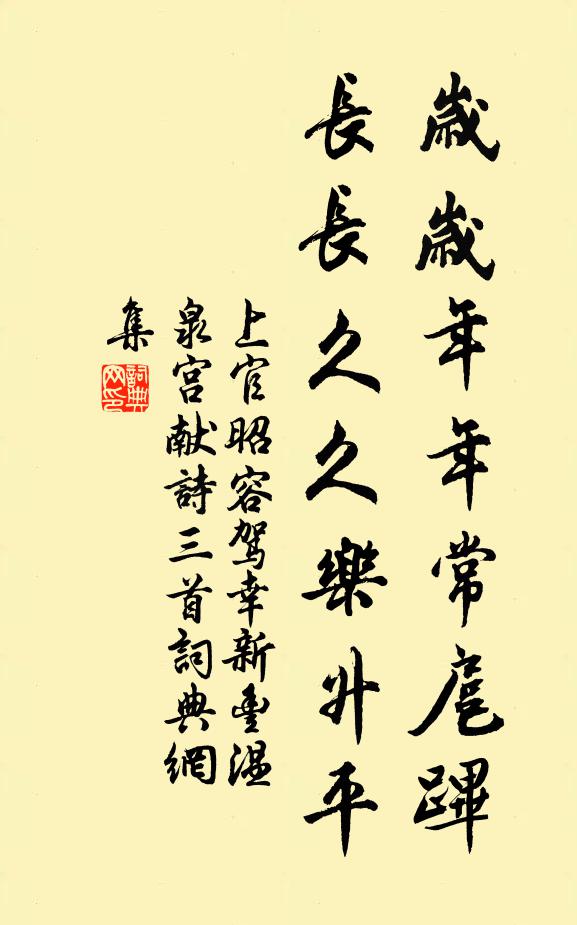 歲歲年年常扈蹕
長長久久樂升平
上官昭容駕幸新豐温
泉宮献詩三首詞典網
集
詞典
网印